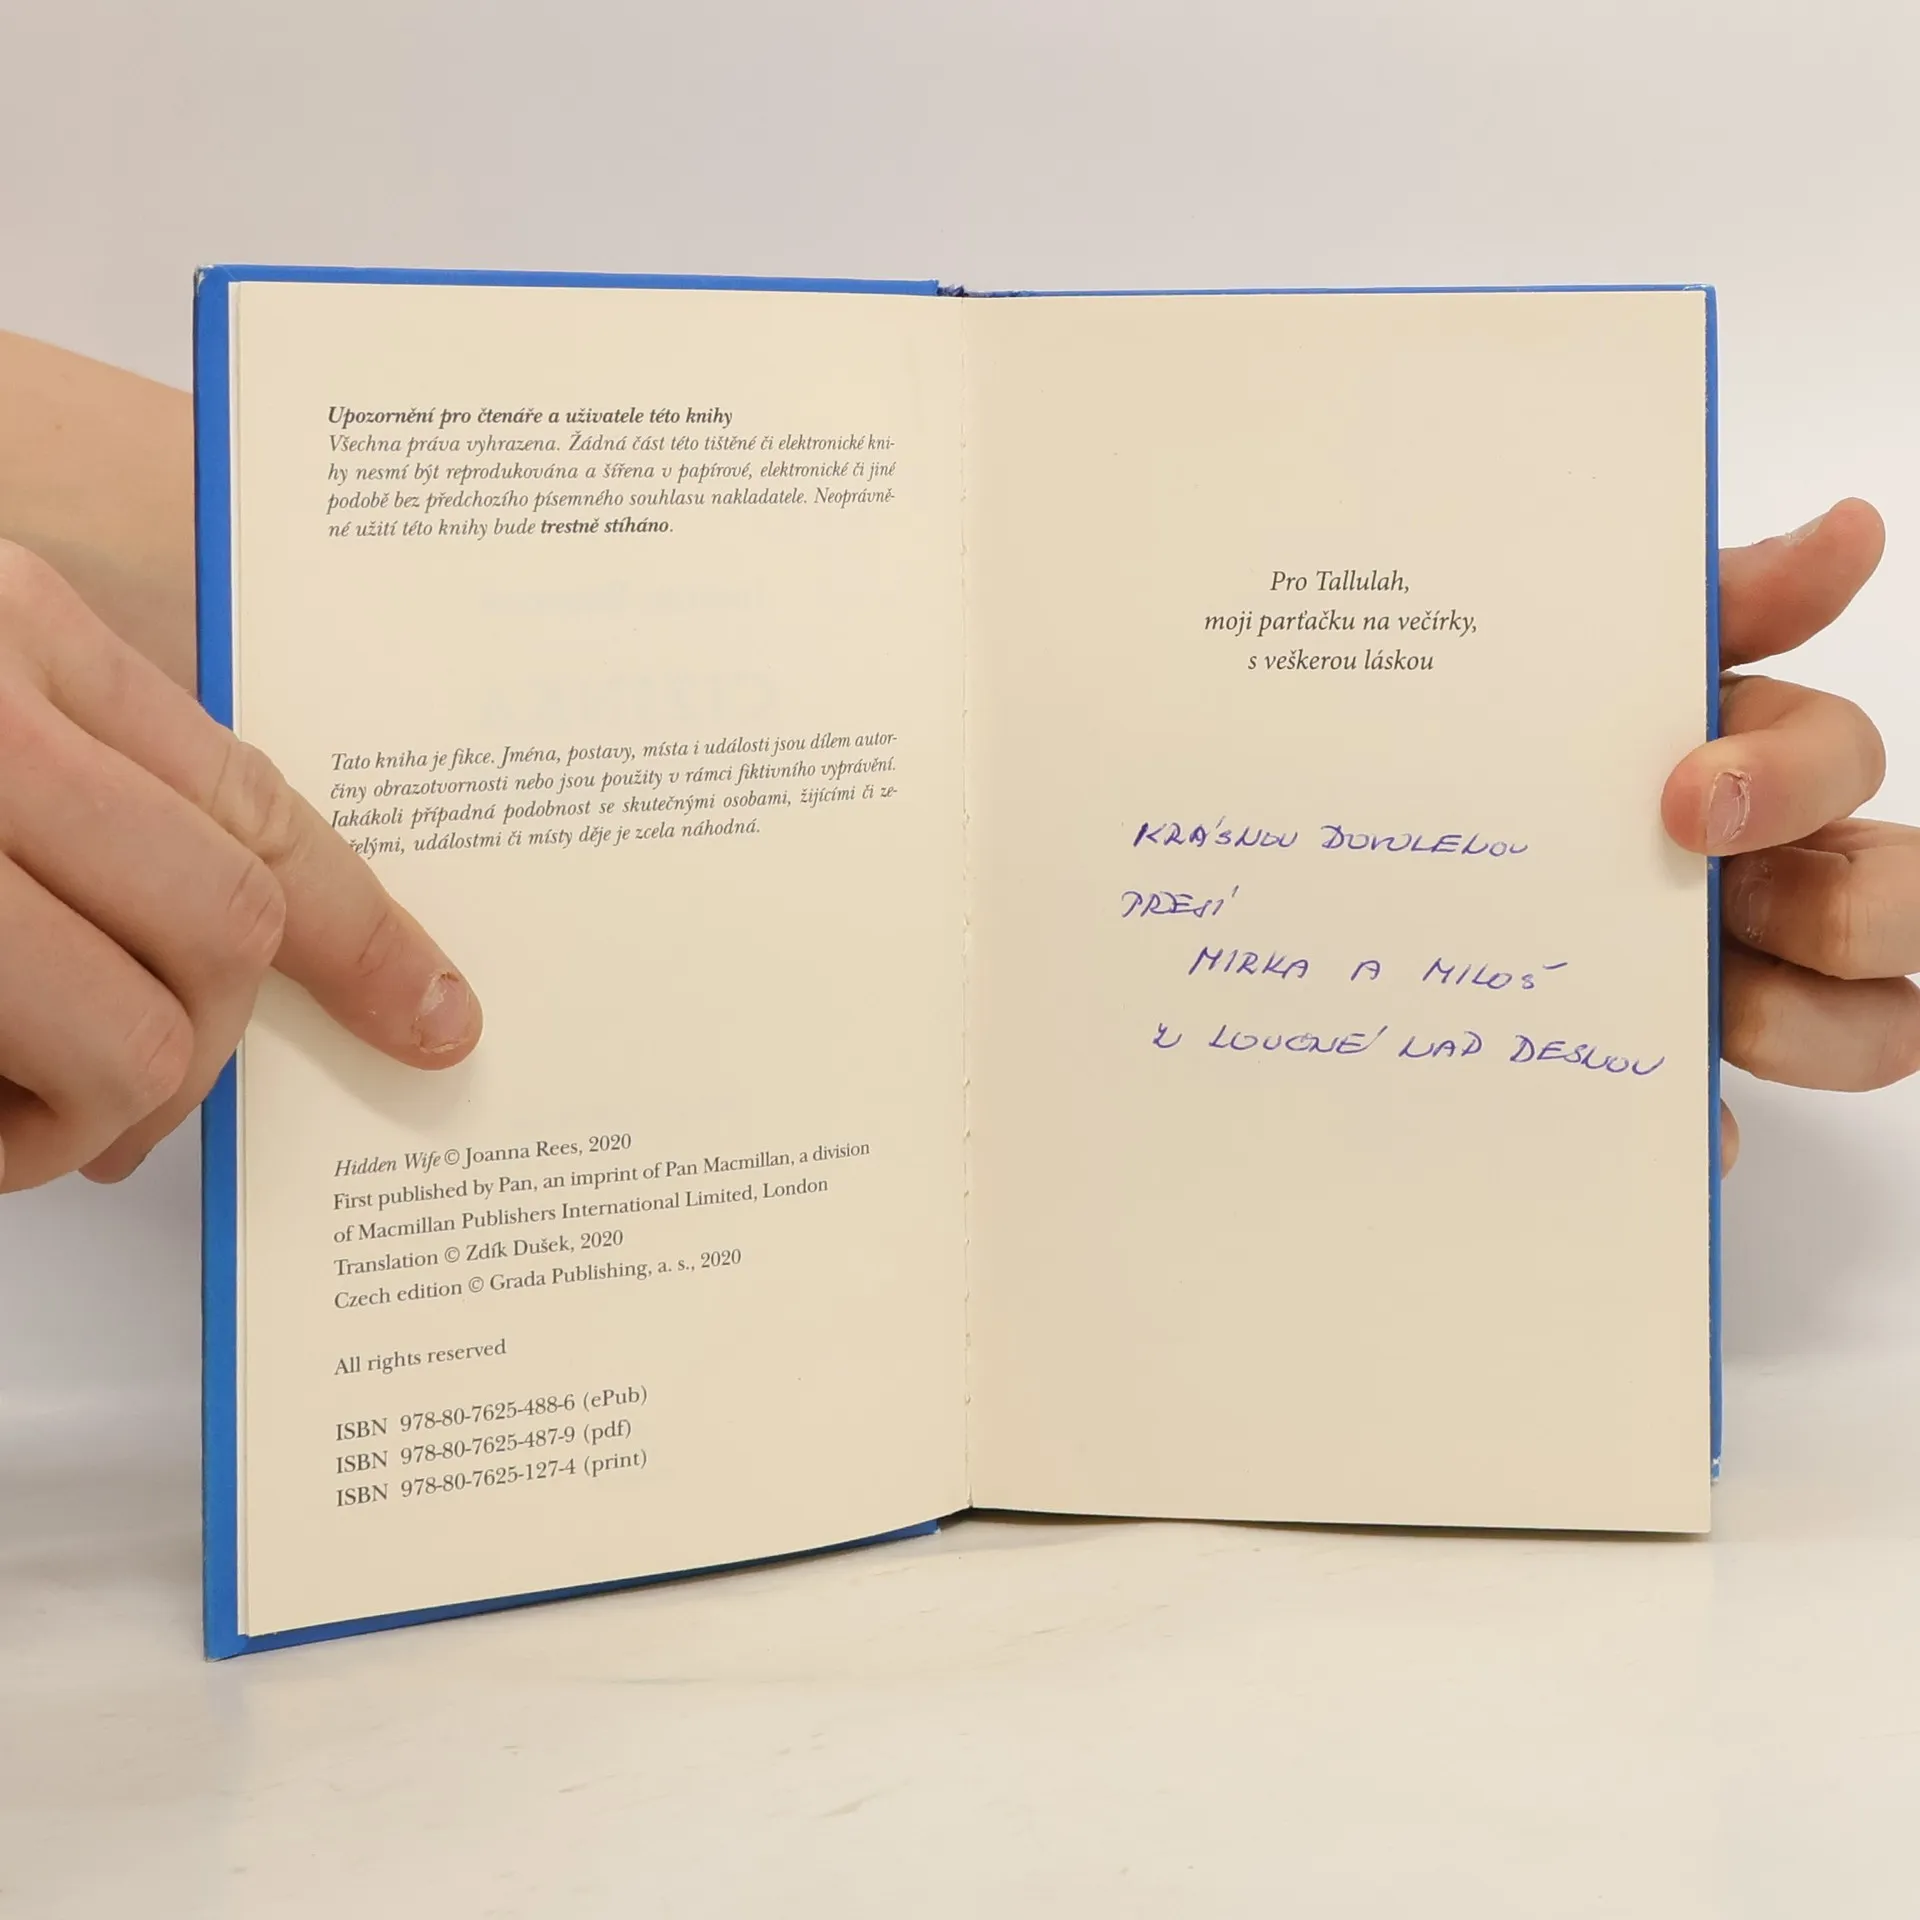 Upozornění pro čtenáře a uživatele této knihy
Všechna práva vyhrazena. Žádná část této tištěné či elektronické kni-
hy nesmí být reprodukována a šířena v papírové, elektronické či jiné
podobě bez předchozího písemného souhlasu nakladatele. Neoprávně-
né užití této knihy bude trestně stíháno.
Tato kniha je fikce. Jména, postavy, místa i události jsou dílem autor-
činy obrazotvornosti nebo jsou použity v rámci fiktivního vyprávění.
Jakákoli případná podobnost se skutečnými osobami, žijícími či ze-
událostmi či místy děje je zcela náhodná.
Hidden Wife © Joanna Rees, 2020
First published by Pan, an imprint of Pan Macmillan, a division
of Macmillan Publishers International Limited, London
Translation © Zdík Dušek, 2020
Czech edition © Grada Publishing, a. s., 2020
All rights reserved
ISBN 978-80-7625-488-6 (ePub)
ISBN 978-80-7625-487-9 (pdf)
ISBN 978-80-7625-127-4 (print)
Pro Tallulah,
moji parťačku na večírky,
s veškerou láskou
KRÁSNOU DOVOLENOU
PŘEJÍ
MIRKA A MILOŠ
Z LOUČNÉ NAD DESNOU